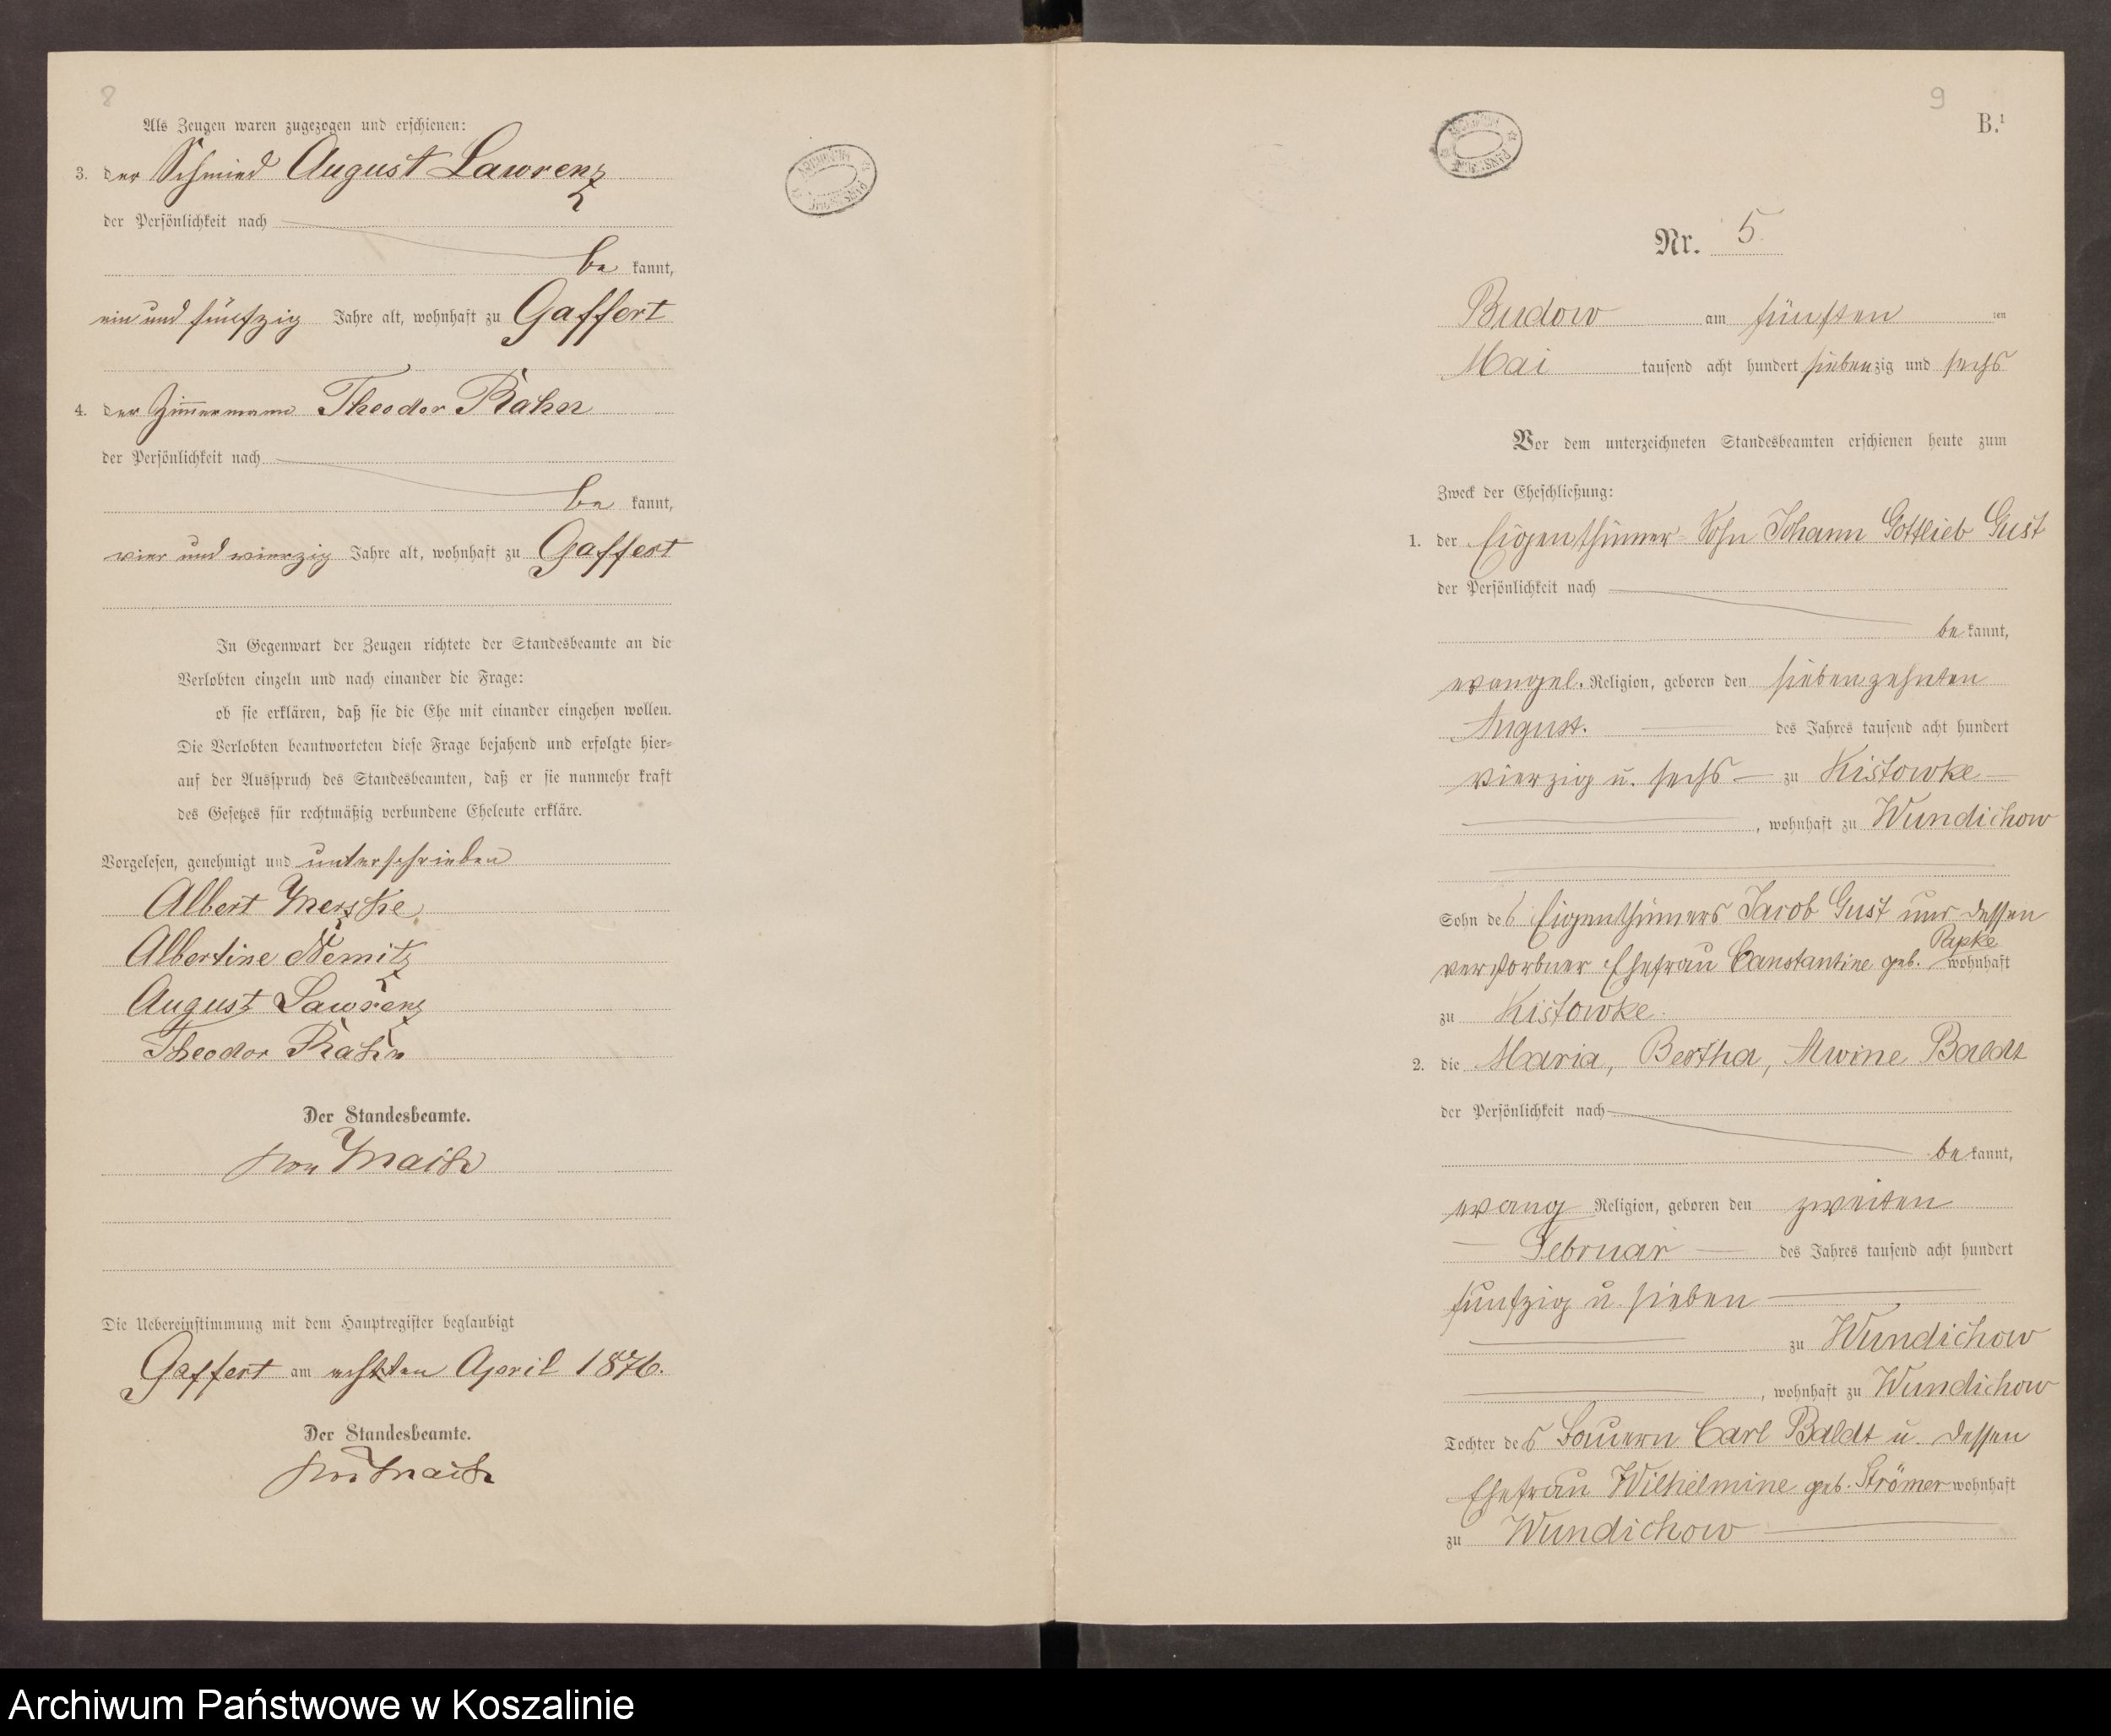 8
Als Zeugen waren zugezogen und erschienen:
3. der Schmied August Lawrenz
der Persönlichkeit nach
be kannt,
ein und fünfzig Jahre alt, wohnhaft zu Gaffert
4. der Zimmermann Theodor Rahn
der Persönlichkeit nach
be kannt,
vier und vierzig Jahre alt, wohnhaft zu Gaffert
In Gegenwart der Zeugen richtete der Standesbeamte an die
Verlobten einzeln und nach einander die Frage:
ob sie erklären, daß sie die Ehe mit einander eingehen wollen.
Die Verlobten beantworteten diese Frage bejahend und erfolgte hier-
auf der Ausspruch des Standesbeamten, daß er sie nunmehr kraft
des Gesetzes für rechtmäßig verbundene Eheleute erkläre.
Vorgelesen, genehmigt und unterschrieben
Albert Merske
Albertine Nemitz
August Lawrenz
Theodor Rahn
Der Standesbeamte.
von
Die Uebereinstimmung mit dem Hauptregister beglaubigt
Gaffert am achten April 1876.
Der Standesbeamte.
9
B.1
Nr. 5.
Budow am fünften ten
Mai tausend acht hundert siebenzig und sechs
Vor dem unterzeichneten Standesbeamten erschienen heute zum
Zweck der Eheschließung:
1. der Eigenthümer-Sohn Johann Gottlieb Gust
der Persönlichkeit nach
be kannt,
evangel. Religion, geboren den siebenzehnten
August. des Jahres tausend acht hundert
vierzig u. sechs zu Kistowke
, wohnhaft zu Wundichow
Sohn des Eigenthümers Jacob Gust und dessen
verstorbner Ehefrau Constantine geb. Papke wohnhaft
zu Kistowke.
2. die Maria, Bertha, Alwine Baldt
der Persönlichkeit nach
be kannt,
evang Religion, geboren den zweiten
Februar des Jahres tausend acht hundert
funfzig u. sieben
zu Wundichow
, wohnhaft zu Wundichow
Tochter des Bauern Carl Baldt u. dessen
Ehefrau Wilhelmine geb. Strömer wohnhaft
zu Wundichow
Archiwum Państwowe w Koszalinie